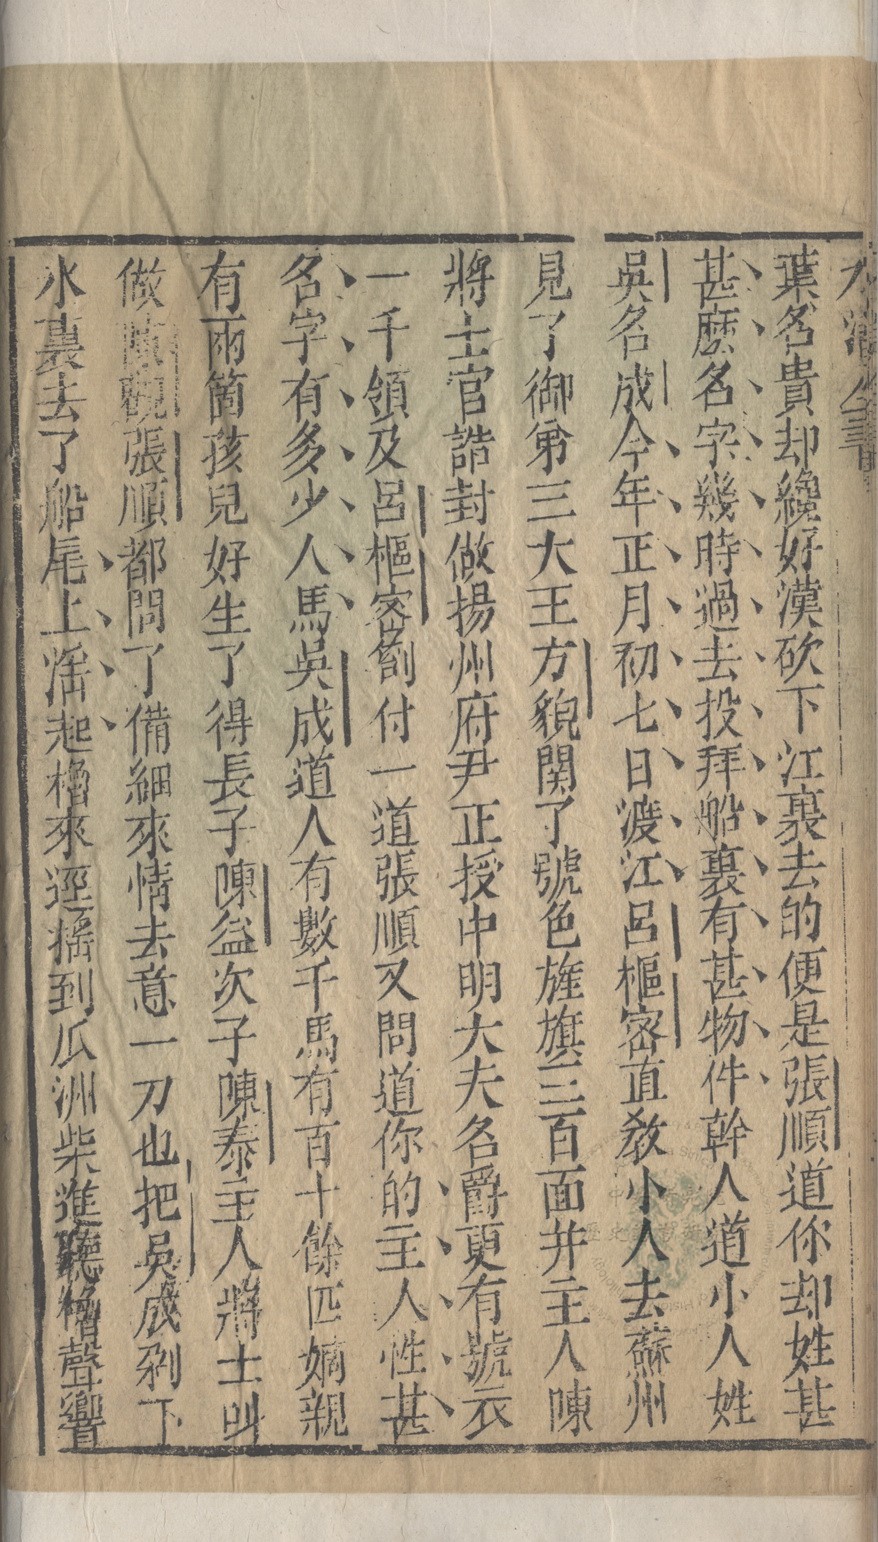 水滸全書
葉名貴却纔好漢砍下江裏去的便是張順道你却姓甚
甚麽名字幾時過去投拜船裏有甚物件幹人道小人姓
吳名成今年正月初七日渡江呂樞密直教小人去蘇州
見了御弟三大王方貌関了號色旌旗三百面并主人陳
將士官誥封做揚州府尹正授中明大夫名爵更有號衣
一千領及呂樞密劄付一道張順又問道你的主人性甚
名字有多少人馬吳成道人有數千馬有百十餘匹嫡親
有兩箇孩兒好生了得長子陳益次子陳泰主人將士叫
做陳觀張順都問了備細來情去意一刀也把吳成剁下
水裏去了船尾上摇起櫓來逕摇到瓜洲柴進聽櫓聲響